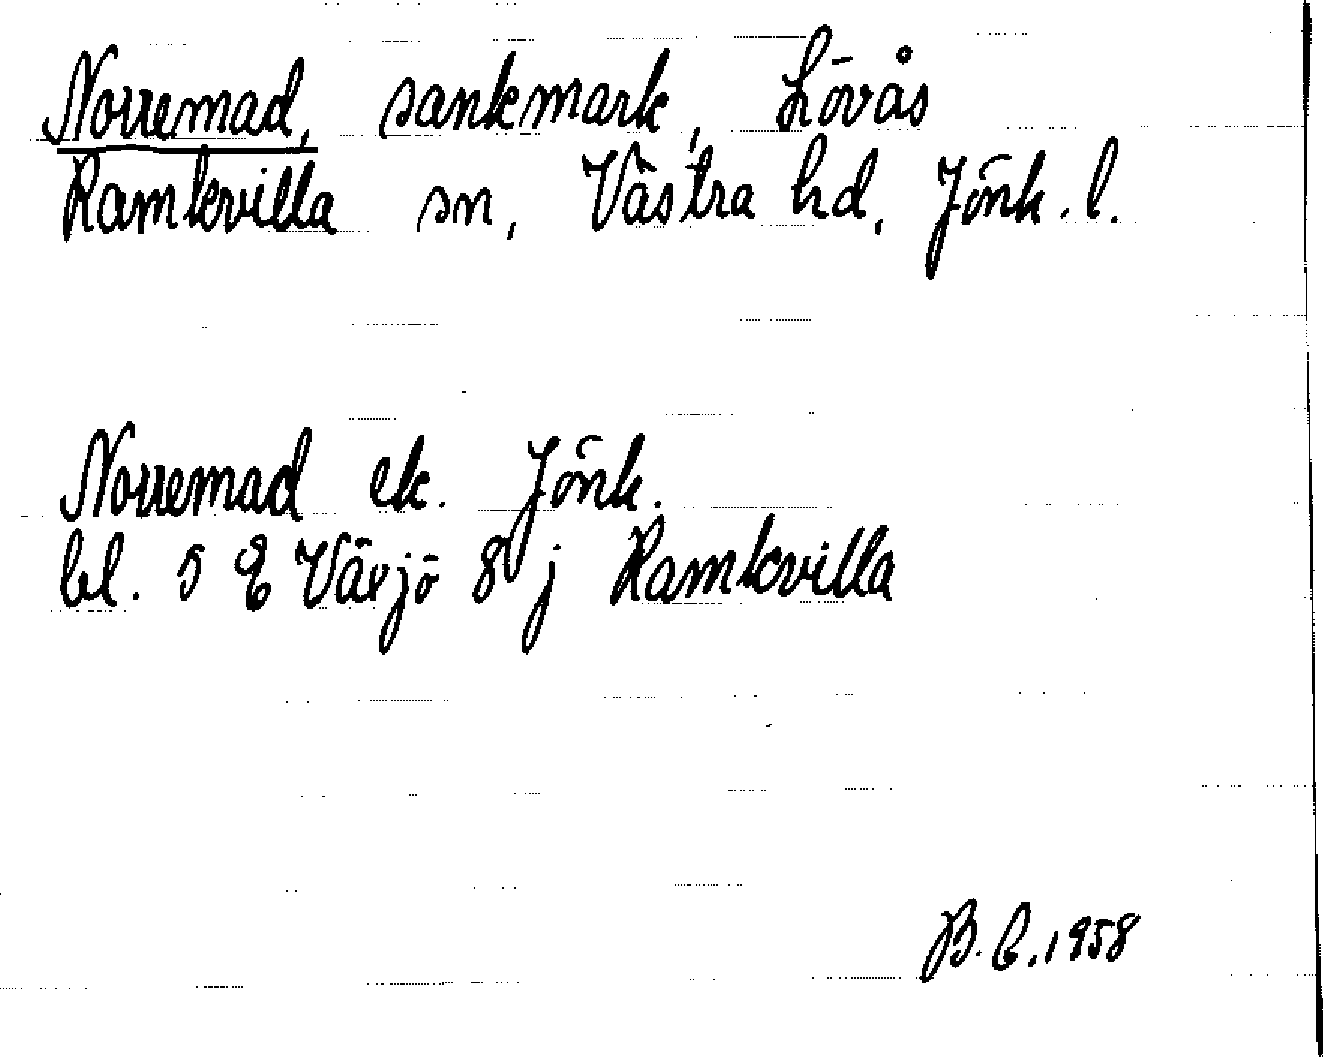 Norremad, sankmark, Lövås
Ramkvilla sn, Västra hd, Jönk. l.
Norremad ek. Jönk.
bl. 5 E Växjö 8 j Ramkvilla
B. C. 1958